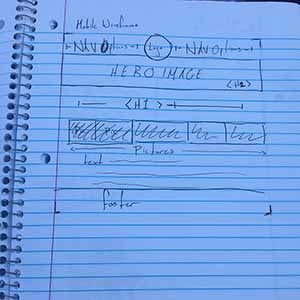 Mobile Wireframe
NAV Options Logo NAV Options
HERO IMAGE
<H2>
<H1>
Pictures
text
footer